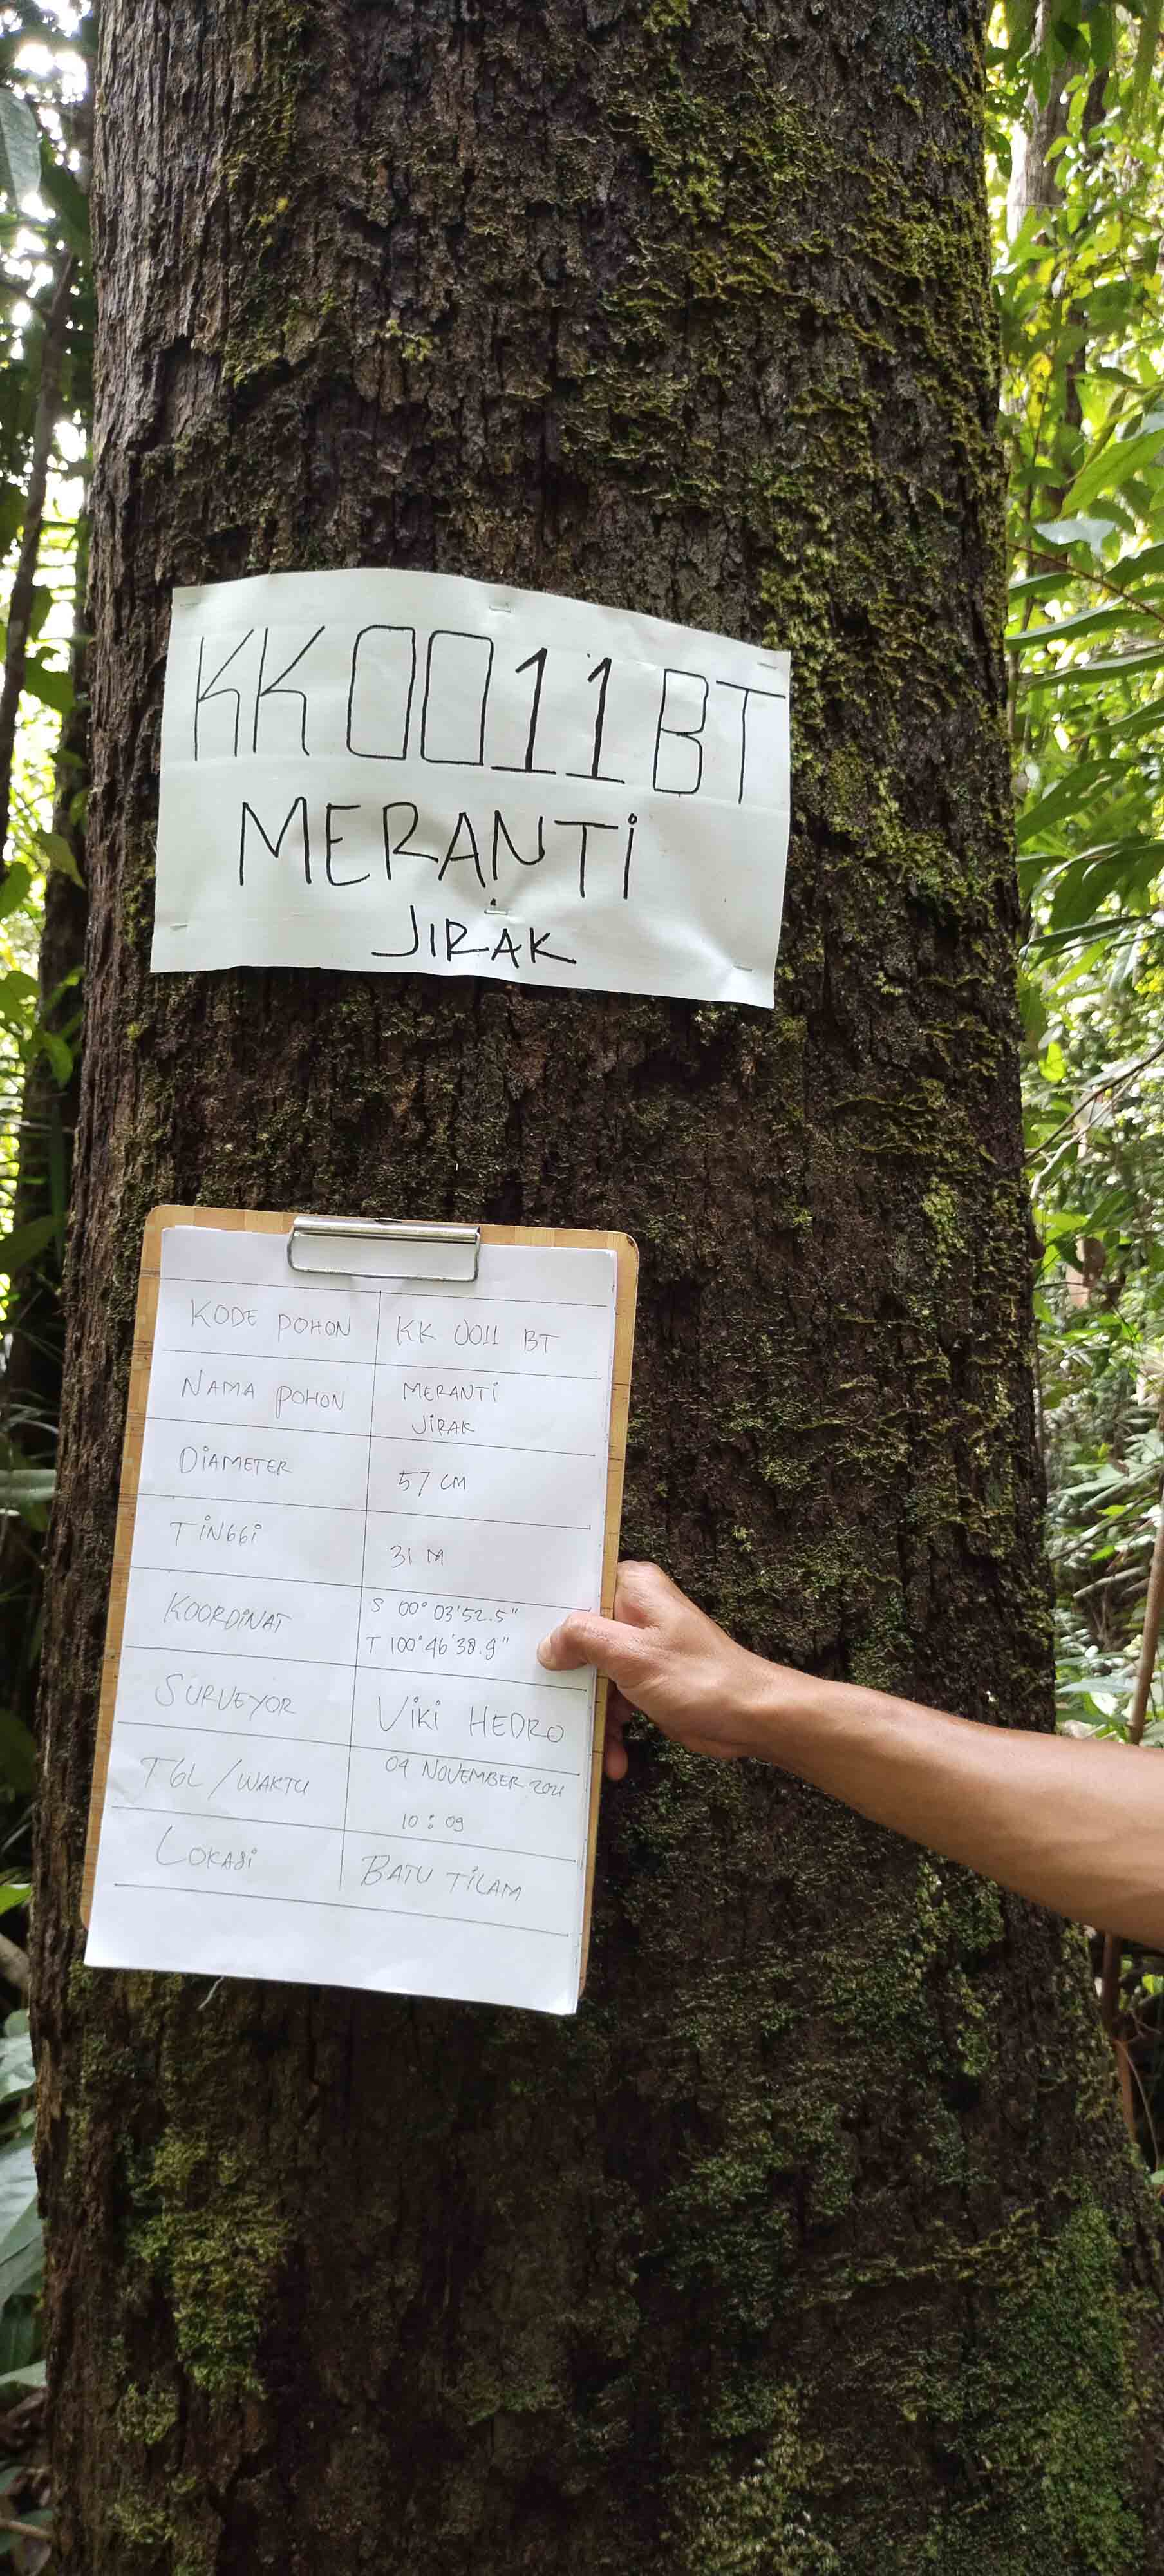 KK0011BT
MERANTi
JIRAK
KODE POHON KK 0011 BT
NAMA POHON MERANTi
JiRAK
DiAMETER 57 CM
TiNGGi 31 M
KOORDiNAT S 00° 03'52.5"
T 100°46'38.9"
SURVEYOR ViKi HEDRO
TGL / WAKTU 04 NOVEMBER 2021
10 : 09
LOKASi BATU TiLAM